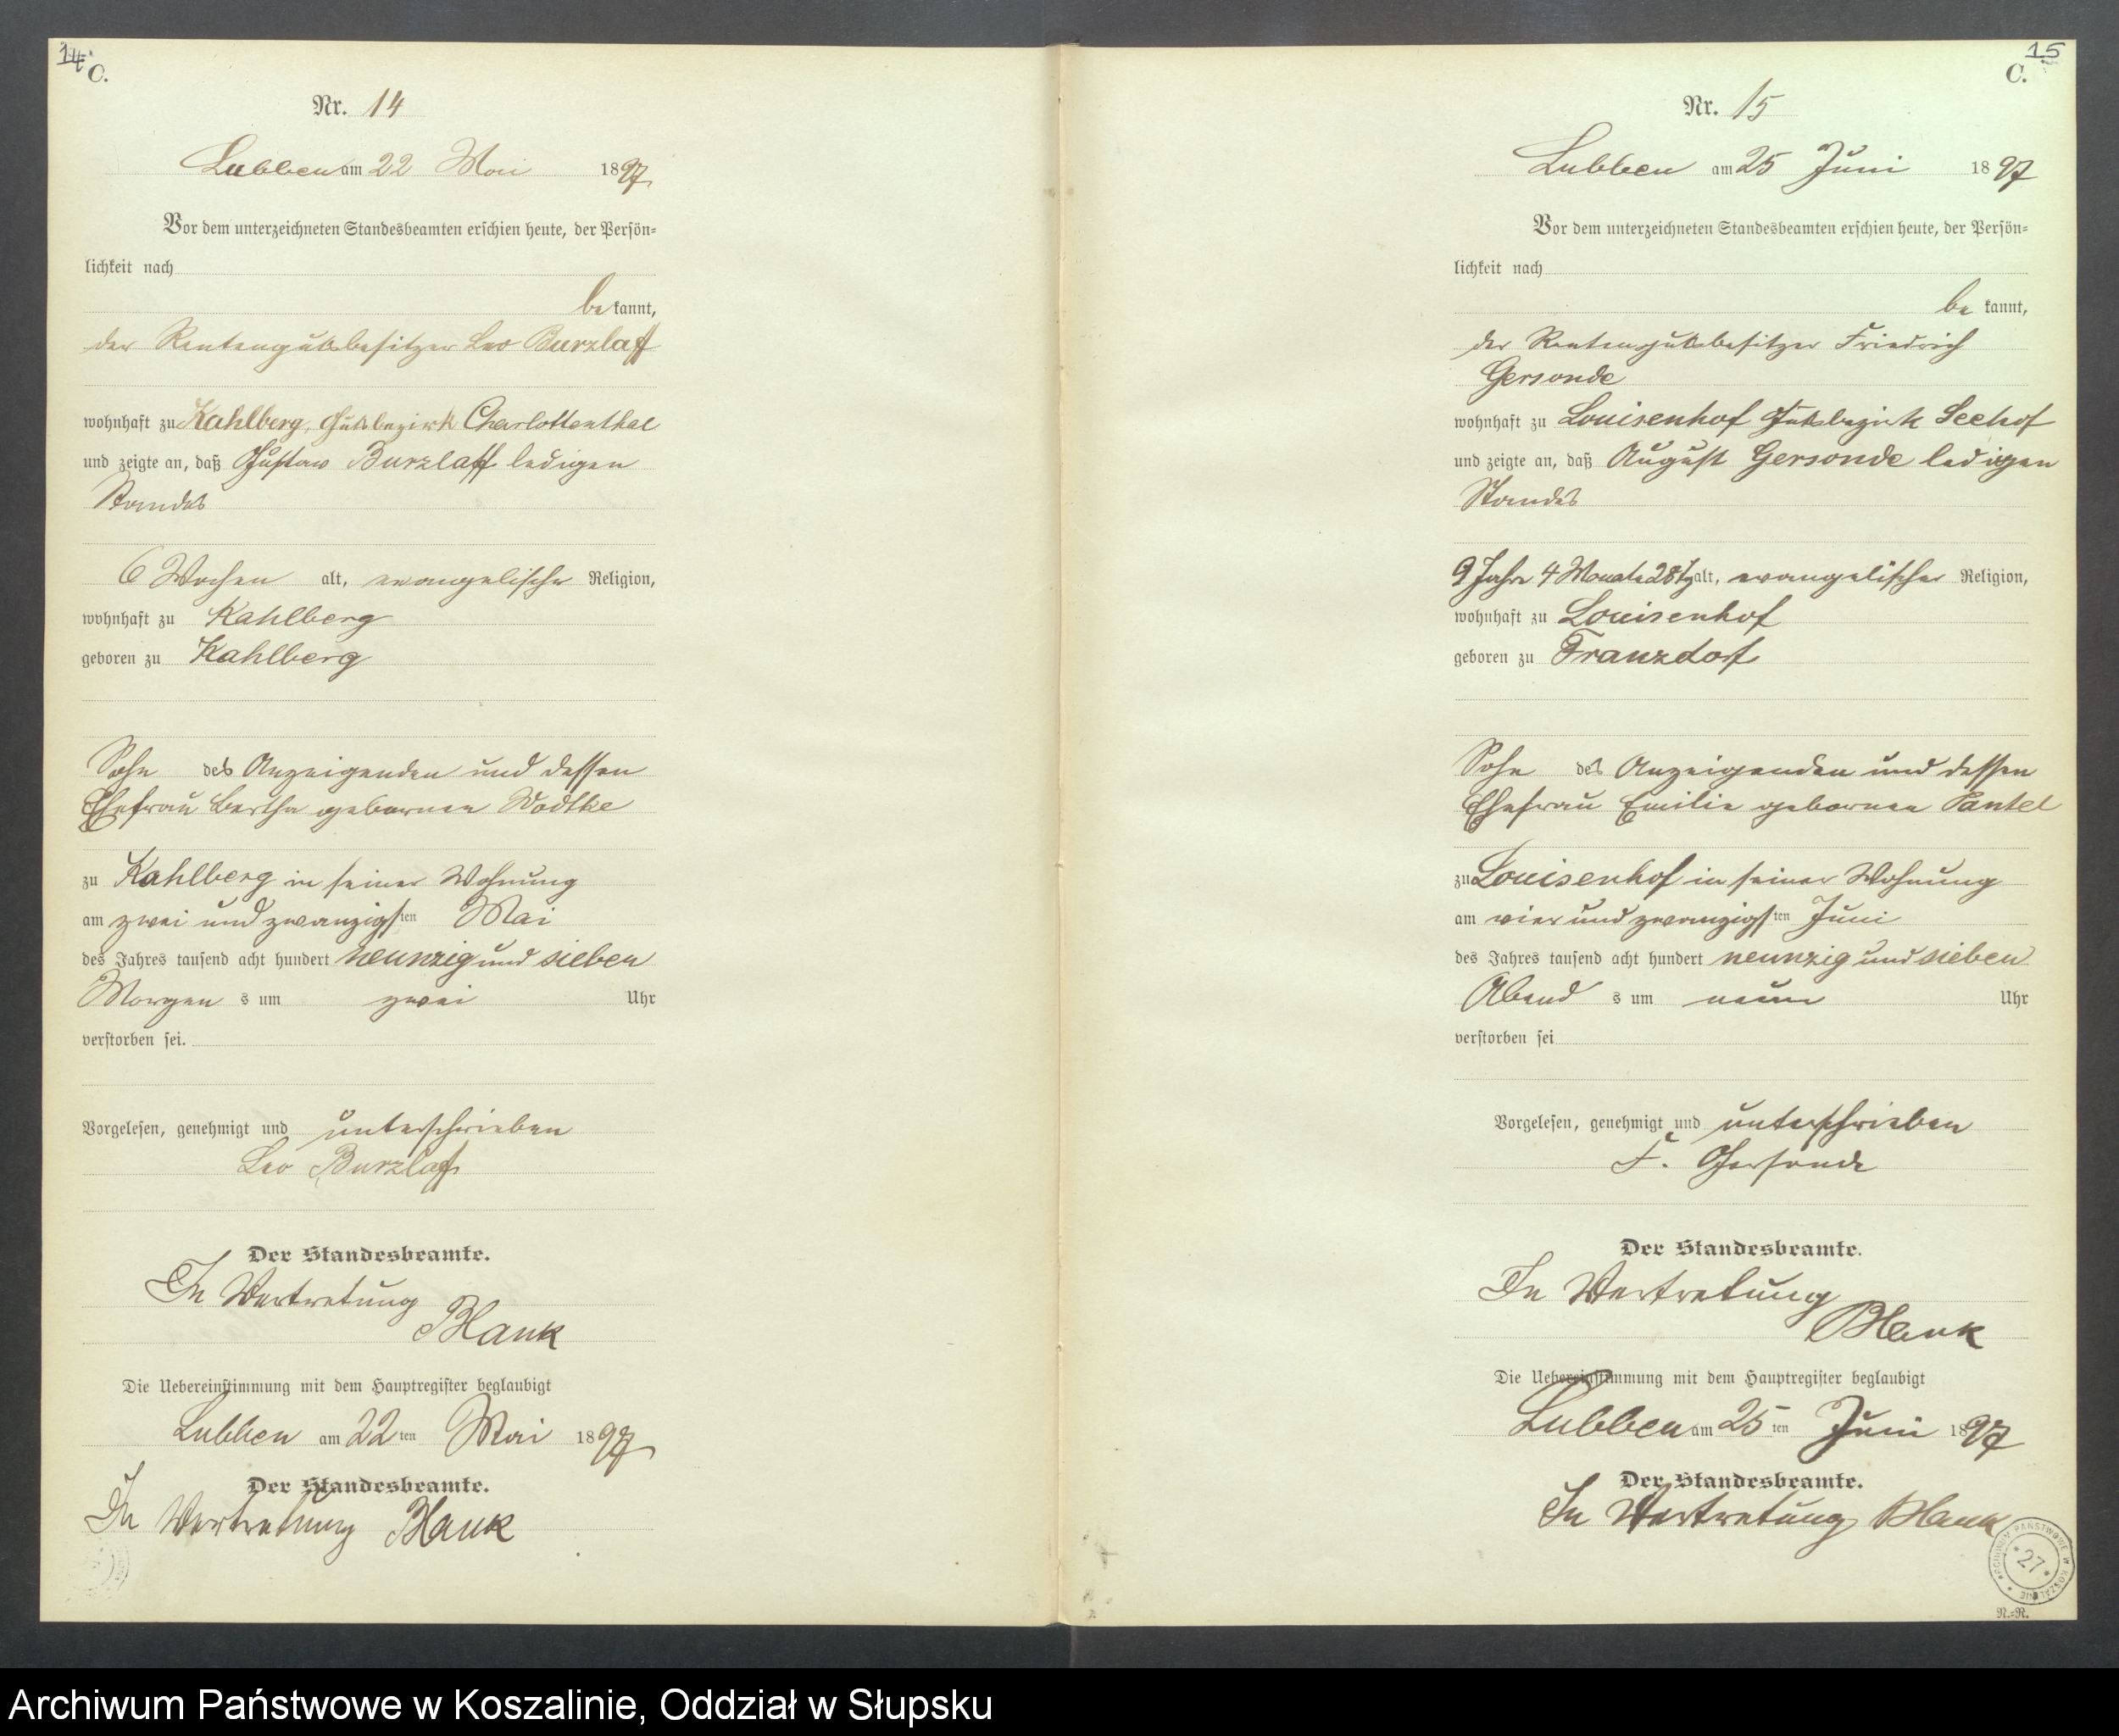 14
C.
Nr. 14
Lubben am 22 Mai 1897
Vor dem unterzeichneten Standesbeamten erschien heute, der Persön-
lichkeit nach
be kannt,
der Rentengutsbesitzer Leo Burzlaff
wohnhaft zu Kahlberg, Gutsbezirk Charlottenthal
und zeigte an, daß Gustav Burzlaff ledigen
Standes
6 Wochen alt, evangelischer Religion,
wohnhaft zu Kahlberg
geboren zu Kahlberg
Sohn des Anzeigenden und dessen
Ehefrau Bertha gebornen Wodtke
zu Kahlberg in seiner Wohnung
am zwei und zwanzigsten Mai
des Jahres tausend acht hundert neunzig und sieben
Morgen s um zwei Uhr
verstorben sei.
Vorgelesen, genehmigt und unterschrieben
Leo Burzlaff
Der Standesbeamte.
In Vertretung
Blank
Die Uebereinstimmung mit dem Hauptregister beglaubigt
Lubben am 22 ten Mai 1897
Der Standesbeamte.
In Vertretung Blank
15
C.
Nr. 15
Lubben am 25 Juni 1897
Vor dem unterzeichneten Standesbeamten erschien heute, der Persön-
lichkeit nach
be kannt,
der Rentengutsbesitzer Friedrich
Gersonde
wohnhaft zu Louisenhof Gutsbezirk Seehof
und zeigte an, daß August Gersonde ledigen
Standes
9 Jahre 4 Monate 28 Tg alt, evangelischer Religion,
wohnhaft zu Louisenhof
geboren zu Franzdorf
Sohn des Anzeigenden und dessen
Ehefrau Emilie gebornen
zu Louisenhof in seiner Wohnung
am vier und zwanzigsten Juni
des Jahres tausend acht hundert neunzig und sieben
Abend s um neun Uhr
verstorben sei
Vorgelesen, genehmigt und unterschrieben
F. Gersonde
Der Standesbeamte.
In Vertretung
Blank
Die Uebereinstimmung mit dem Hauptregister beglaubigt
Lubben am 25 ten Juni 1897
Der Standesbeamte.
In Vertretung Blank
ARCHIWUM PAŃSTWOWE W KOSZALINIE
* 27 *
N.=R.
Archiwum Państwowe w Koszalinie, Oddział w Słupsku